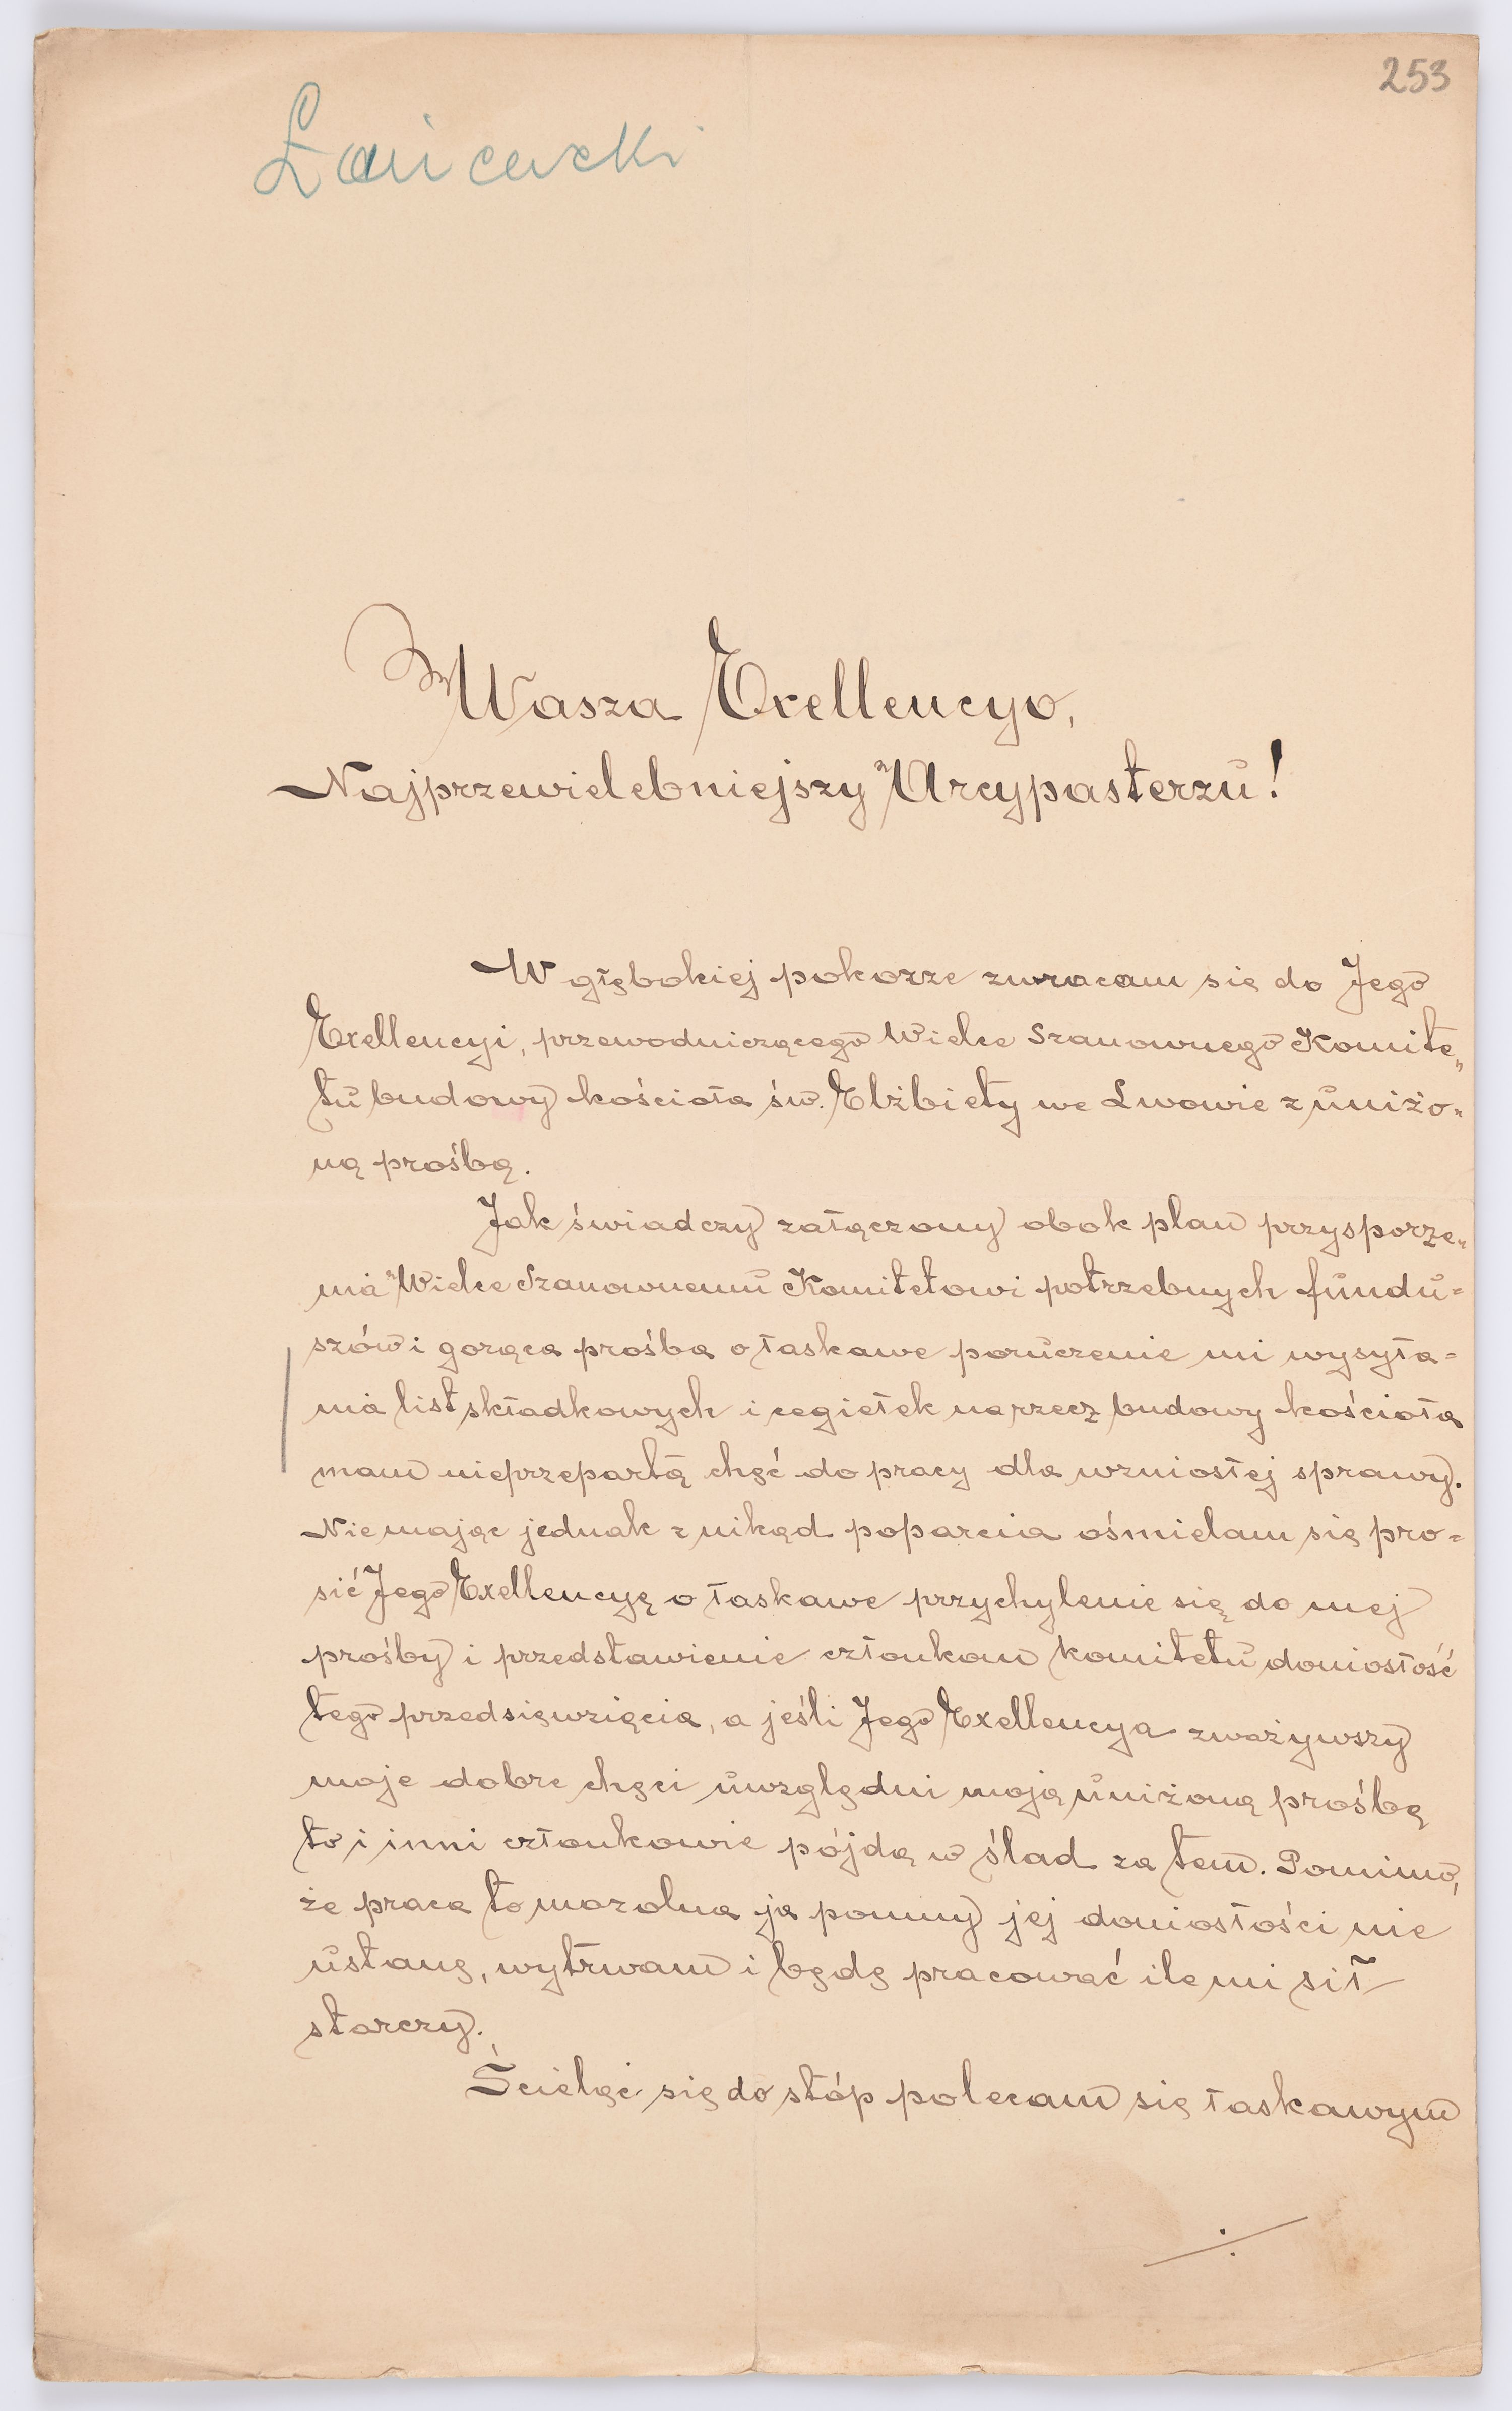 253
Wasza Exellencyo,
Najprzewielebniejszy Arcypasterzu!
W głębokiej pokorze zwracam się do Jego
Exellencyi, przewodniczącego Wielce Szanownego Komite„
tu budowy kościoła św. Elżbiety we Lwowie z uniżo„
ną prośbą.
Jak świadczy załączony obok plan przysporze„
nia Wielce Szanownemu Komitetowi potrzebnych fundu=
szów i gorąca prośba o łaskawe poruczenie mi wysyła=
nia list składkowych i cegiełek na rzecz budowy kościoła
mam nieprzepartą chęć do pracy dla wzniosłej sprawy.
Nie mając jednak znikąd poparcia ośmielam się pro=
sić Jego Exellencyę o łaskawe przychylenie się do mej
prośby i przedstawienie członkom komitetu doniosłość
tego przedsięwzięcia, a jeśli Jego Exellencya zważywszy
moje dobre chęci uwzględni moją uniżoną prośbę
to i inni członkowie pójdą w ślad za tem. Pomimo,
że praca to mozolna ja pomny jej doniosłości nie
ustanę, wytrwam i będę pracować ile mi sił
starczy.
Ścieląc się do stóp polecam się łaskawym